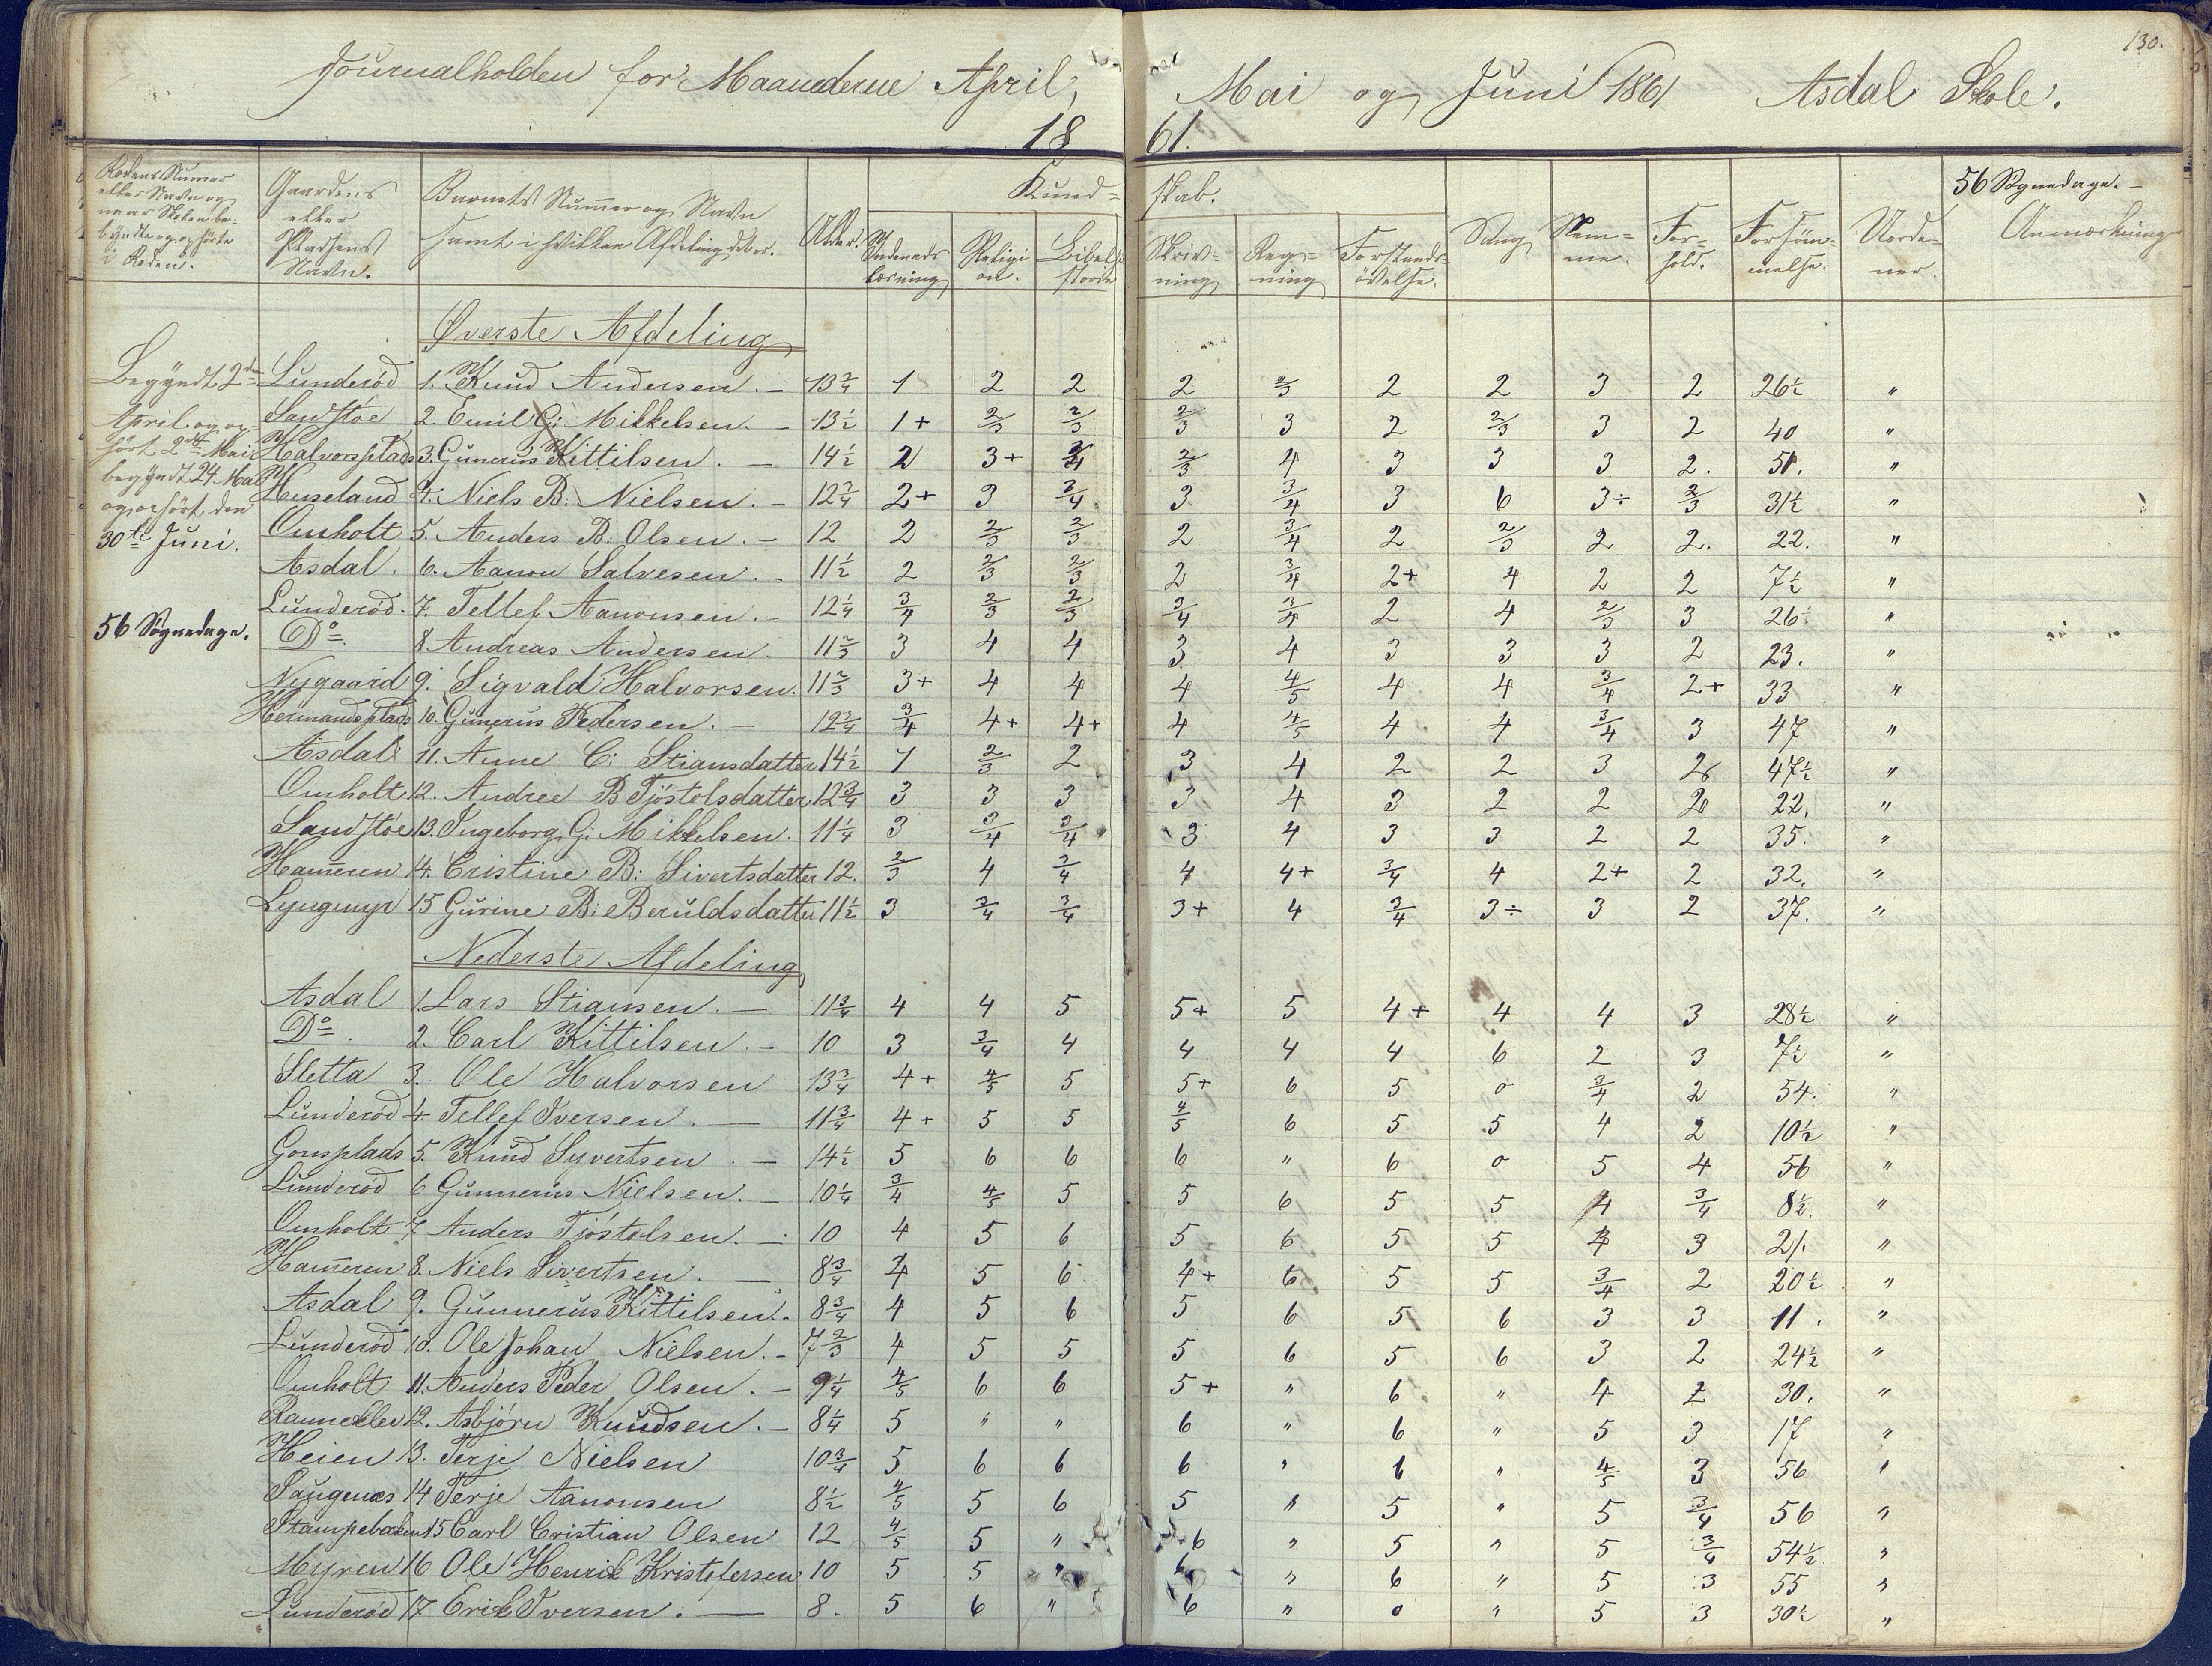 130.
Journalholden for Maanederne April, Mai og Juni 1861 Asdal Skole.
1861.
Rodens Numer eller Navn og naar Skolen begyndte og ophörte i Roden.
Gaardens eller Pladsens Navn.
Barnets Numer og Navn samt i hvilken Afdeling det er.
Alder.
Kundskab.
Indenads læsning
Religion.
Bibelhistorie
Skrivning
Regning
Forstands övelse.
Sang
Nemme.
Forhold.
Forsömmelse.
Uordener.
56 Sögnedage. –
Anmærkning
Øverste Afdeling
Begyndt 2den April og ophört 2den Mai begyndt 24 Mai og ophört den 30te Juni.
56 Sögnedage.
Lunderöd 1. Knud Andersen. – 13 3/4 1 2 2 2 2/3 2 2 3 2 26 1/2 "
Sandstöe 2. Emil G: Mikkelsen. – 13 1/2 1+ 2/3 2/3 2/3 3 2 2/3 3 2 40 "
Halvorsplads 3. Gunerius Kittilsen. – 14 1/2 2 3+ 3/4 2/3 4 3 3 3 2. 51. "
Huseland 4. Niels B: Nielsen. – 12 3/4 2+ 3 3/4 3 3/4 3 6 3÷ 2/3 31 1/2 "
Omholt 5. Anders B: Olsen. – 12 2 2/3 2/3 2 3/4 2 2/3 2 2. 22. "
Asdal. 6. Aanon Salvesen. – 11 1/2 2 2/3 2/3 2 3/4 2+ 4 2 2 7 1/2 "
Lunderöd. 7. Tellef Aanonsen. – 12 1/4 3/4 2/3 2/3 3/4 3/4 2 4 2/3 3 26 "
Do. 8 Andreas Andersen 11 2/3 3 4 4 3 4 3 3 3 2 23. "
Nygaard 9. Sigvald Halvorsen. 11 2/3 3+ 4 4 4 4/5 4 4 3/4 2+ 33 "
Hermandsplads 10. Gunerius Pedersen. – 12 3/4 3/4 4+ 4+ 4 4/5 4 4 3/4 3 47 "
Asdal 11. Anne C: Stiansdatter 14 1/2 1 2/3 2 3 4 2 2 3 2 47 1/2 "
Omholt 12. Andree B Tjöstolsdatter 12 3/4 3 3 3 3 4 3 2 2 2 22. "
Sandstöe 13. Ingeborg G: Mikkelsen. 11 1/4 3 3/4 3/4 3 4 3 3 2 2 35. "
Ham̄eren 14. Cristine B: Sivertsdatter 12. 2/3 4 3/4 4 4+ 3/4 4 2+ 2 32. "
Lyngmyr 15 Gurine B: Beruldsdatter 11 1/2 3 3/4 3/4 3+ 4 3/4 3÷ 3 2 37. "
Nederste Afdeling
Asdal 1. Lars Stiansen. – 11 3/4 4 4 5 5+ 5 4+ 4 4 3 28 1/2 "
Do. 2. Carl Kittilsen. – 10 3 3/4 4 4 4 4 6 2 3 7 1/2 "
Sletta 3. Ole Halvorsen 13 3/4 4+ 4/5 5 5+ 6 5 0 3/4 2 54. "
Lunderöd 4. Tellef Iversen. – 11 3/4 4+ 5 5 4/5 6 5 5 4 2 10 1/2 "
Gonsplads 5. Knud Syvertsen. – 14 1/2 5 6 6 6 " 6 0 5 4 56 "
Lunderöd 6 Gunnerius Nielsen. – 10 1/4 3/4 4/5 5 5 6 5 5 4 3/4 8 1/2. "
Omholt 7 Anders Tjöstolsen. – 10 4 5 6 5 6 5 5 3 21. "
Ham̄eren 8. Niels Sivertsen. – 8 3/4 5 6 4+ 6 5 5 3/4 2 20 1/2 "
Asdal 9. Gunnerus Kittilsen. 8 3/4 4 5 6 5 6 5 6 3 3 11. "
Lunderöd 10. Ole Johan Nielsen. – 7 2/3 4 5 5 5 6 5 6 3 2 24 1/2 "
Omholt 11. Anders Peder Olsen. – 9 1/4 4/5 6 6 5+ " 6 " 4 2 30. "
12. Asbjörn Knudsen. – 8 1/4 5 " " 6 " 6 " 5 3 17 "
Heien 13. Terje Nielsen 10 3/4 5 6 6 6 " 6 " 4/5 3 56 "
Saugenæs 14 Terje Aanonsen 8 1/2 4/5 5 6 5 " 5 " 5 3/4 56 "
Stampebakken 15 Carl Cristian Olsen 12 4/5 5 " 6 " 5 " 5 3/4 54 1/2 "
Myren 16 Ole Henrik Kristofersen 10 5 5 " 6 " 6 " 5 3 55 "
Lunderöd 17 Erik Iversen. – 8. 5 6 " 6 " 0 " 5 3 30 1/2 "